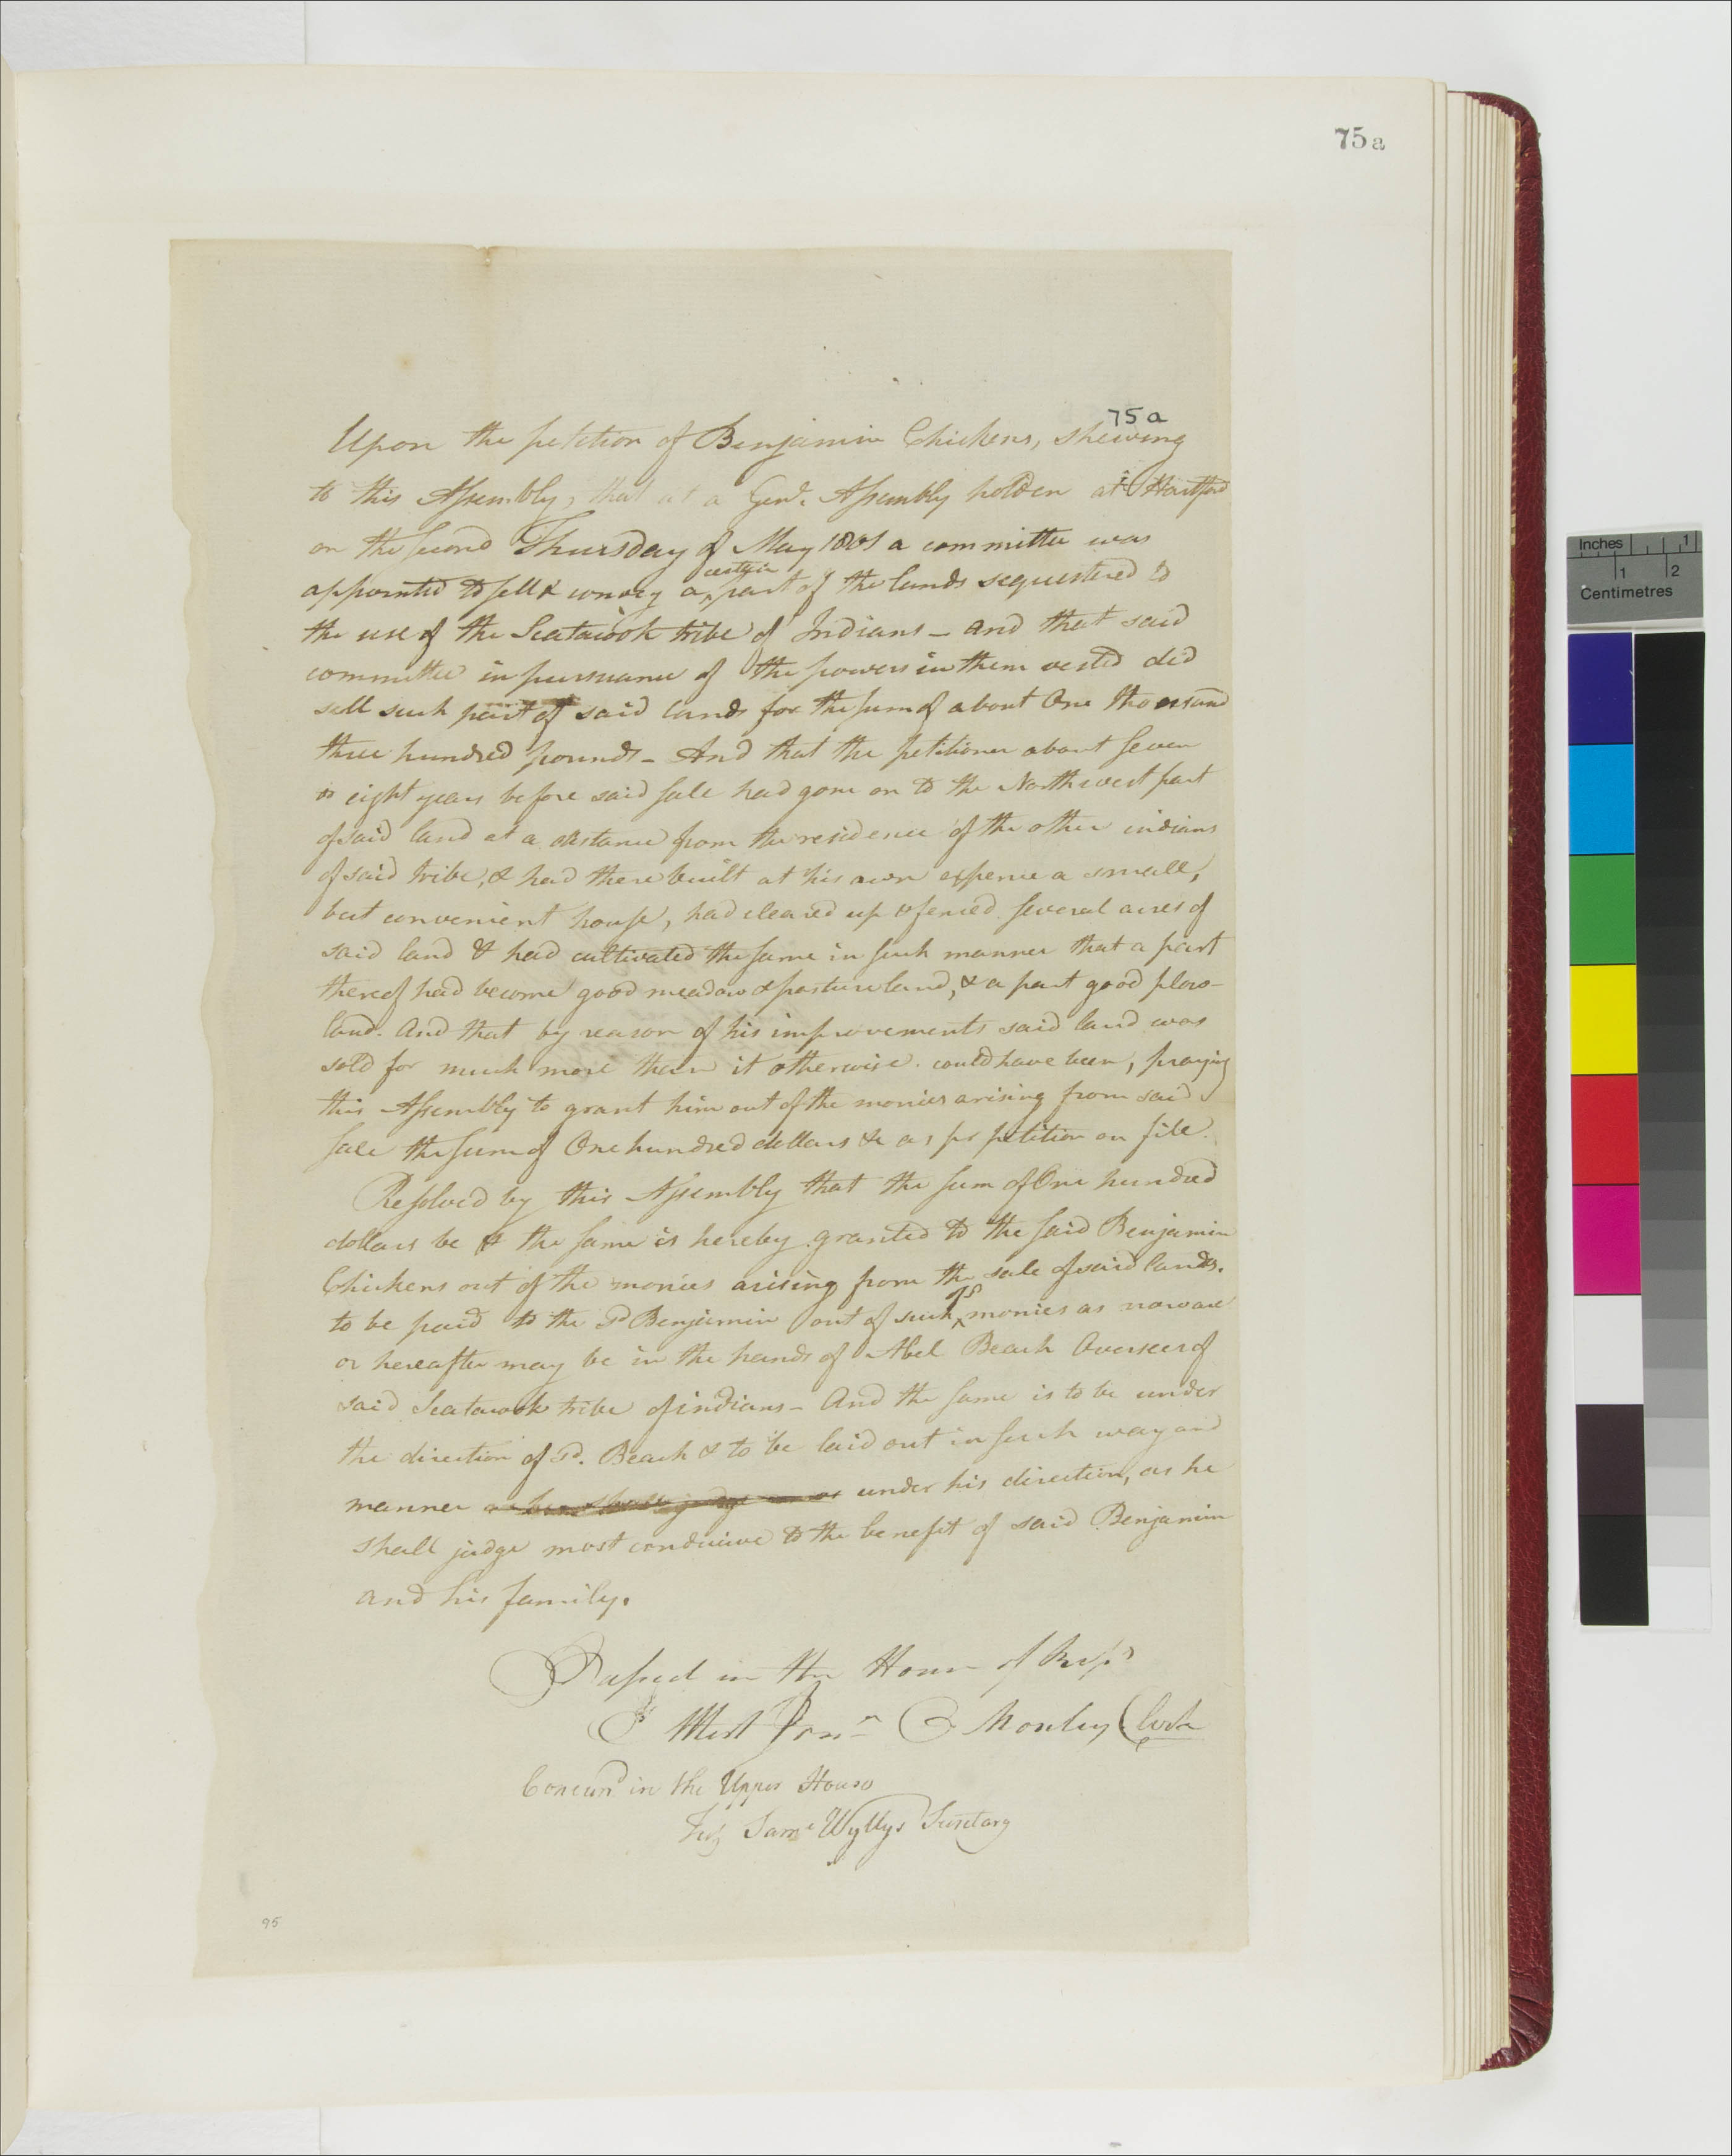 75a
75a
Upon the petition of Benjamin Chickens, shewing
to this Assembly, that at a Genl. Assembly holden at Hartford
on the second Thursday of May 1801 a committee was
appointed to sell & convey a certain part of the lands sequestered to
the use of the Scatacook tribe of Indians - and that said
committee in pursuance of the powers in them vested did
sell such part of said lands for the sum of about One thousand
three hundred pounds - And that the petitioner about seven
or eight years before said sale had gone on to the Northwest part
of said land at a distance from the residence of the other indians
of said tribe, & had there built at his own expence a small,
but convenient house, had cleared up & fenced several acres of
said land & had cultivated the same in such manner that a part
thereof had become good meadow & pasture land, & a part good plow-
land. And that by reason of his improvements said land was
sold for much more than it otherwise could have been, praying
this Assembly to grant him out of the monies arising from said
sale the sum of One hundred dollars &c as pr petition on file.
Resolved by this Assembly that the sum of One hundred
dollars be & the same is hereby granted to the said Benjamin
Chickens out of the monies arising from the sale of said lands.
to be paid to the sd Benjamin out of such monies as now are
or hereafter may be in the hands of Abel Beach Overseer of
said Scatacook tribe of indians - And the same is to be under
the direction of sd. Beach & to be laid out in such way and
manner under his direction, as he
shall judge most conducive to the benefit of said Benjamin
and his family.
Passed in the House of Reps
Attest Jonn G Monley Clerk
Concurrd in the Upper House
Test Saml Wyllys Secretary
95
Inches 1
1 2
Centimetres